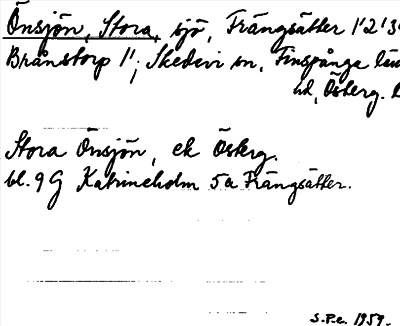 Önsjön, Stora, sjö, Frängsätter 1'2'3
Brånstorp 1'; Skedevi sn, Finspånga län
hd, Österg. l
Stora Önsjön, ek Österg.
bl. 9G Katrineholm 5a Frängsätter.
S.P.e. 1959.